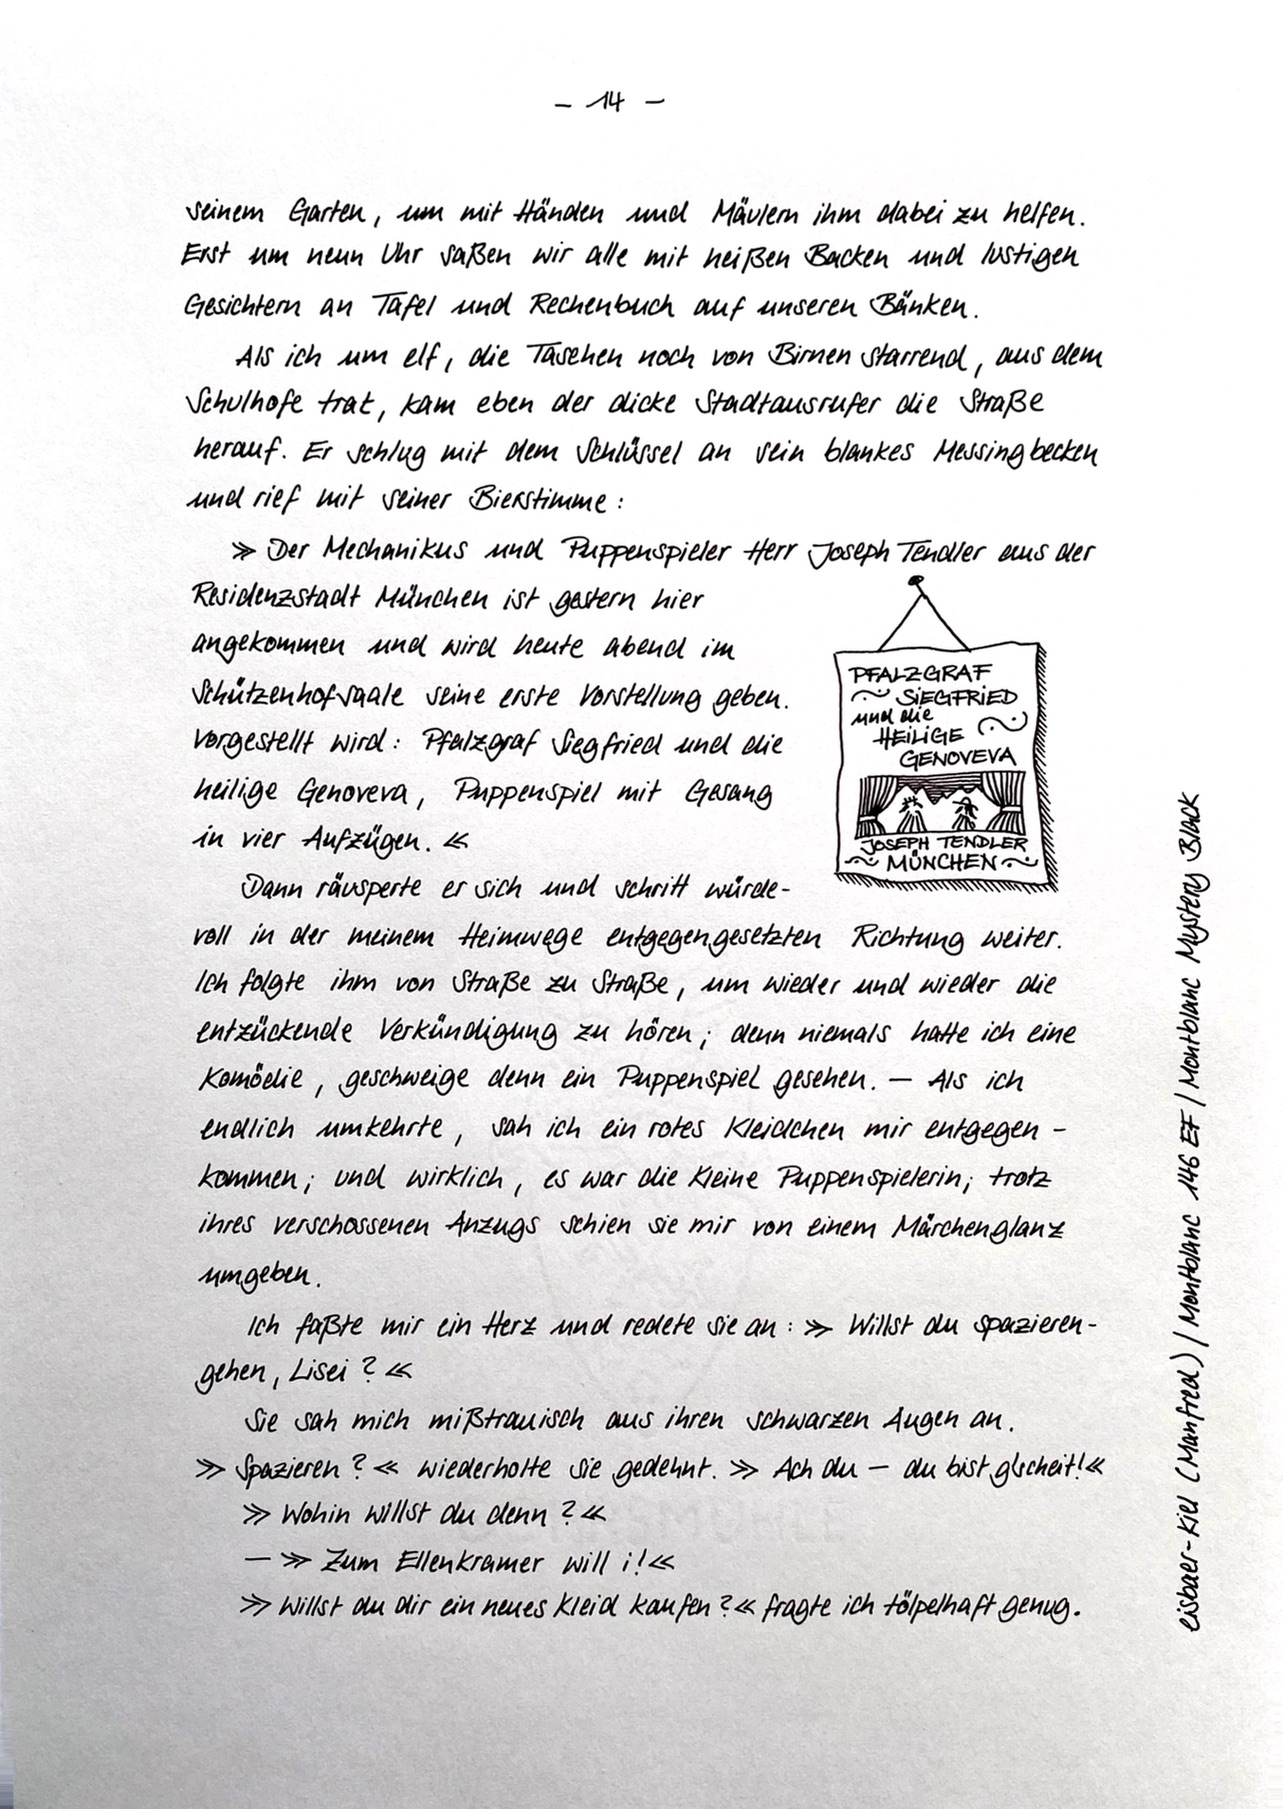 – 14 –
seinem Garten, um mit Händen und Mäulern ihm dabei zu helfen.
Erst um neun Uhr saßen wir alle mit heißen Backen und lustigen
Gesichtern an Tafel und Rechenbuch auf unseren Bänken.
Als ich um elf, die Taschen noch von Birnen starrend, aus dem
Schulhofe trat, kam eben der dicke Stadtausrufer die Straße
herauf. Er schlug mit dem Schlüssel an sein blankes Messingbecken
und rief mit seiner Bierstimme:
»Der Mechanikus und Puppenspieler Herr Joseph Tendler aus der
Residenzstadt München ist gestern hier
angekommen und wird heute abend im
Schützenhofsaale seine erste Vorstellung geben.
Vorgestellt wird: Pfalzgraf Siegfried und die
heilige Genoveva, Puppenspiel mit Gesang
in vier Aufzügen.«
PFALZGRAF
SIEGFRIED
und die
HEILIGE
GENOVEVA
JOSEPH TENDLER
MÜNCHEN
Dann räusperte er sich und schritt würde-
voll in der meinem Heimwege entgegengesetzten Richtung weiter.
Ich folgte ihm von Straße zu Straße, um wieder und wieder die
entzückende Verkündigung zu hören; denn niemals hatte ich eine
Komödie, geschweige denn ein Puppenspiel gesehen. – Als ich
endlich umkehrte, sah ich ein rotes Kleidchen mir entgegen-
kommen; und wirklich, es war die kleine Puppenspielerin; trotz
ihres verschossenen Anzugs schien sie mir von einem Märchenglanz
umgeben.
Ich faßte mir ein Herz und redete sie an: »Willst du spazieren-
gehen, Lisei?«
Sie sah mich mißtrauisch aus ihren schwarzen Augen an.
»Spazieren?« wiederholte sie gedehnt. »Ach du – du bist g'scheit!«
»Wohin willst du denn?«
– »Zum Ellenkramer will i!«
»Willst du dir ein neues Kleid kaufen?« fragte ich tölpelhaft genug.
eisbaer-kiel (Manfred) / Montblanc 146 EF / Montblanc Mystery Black